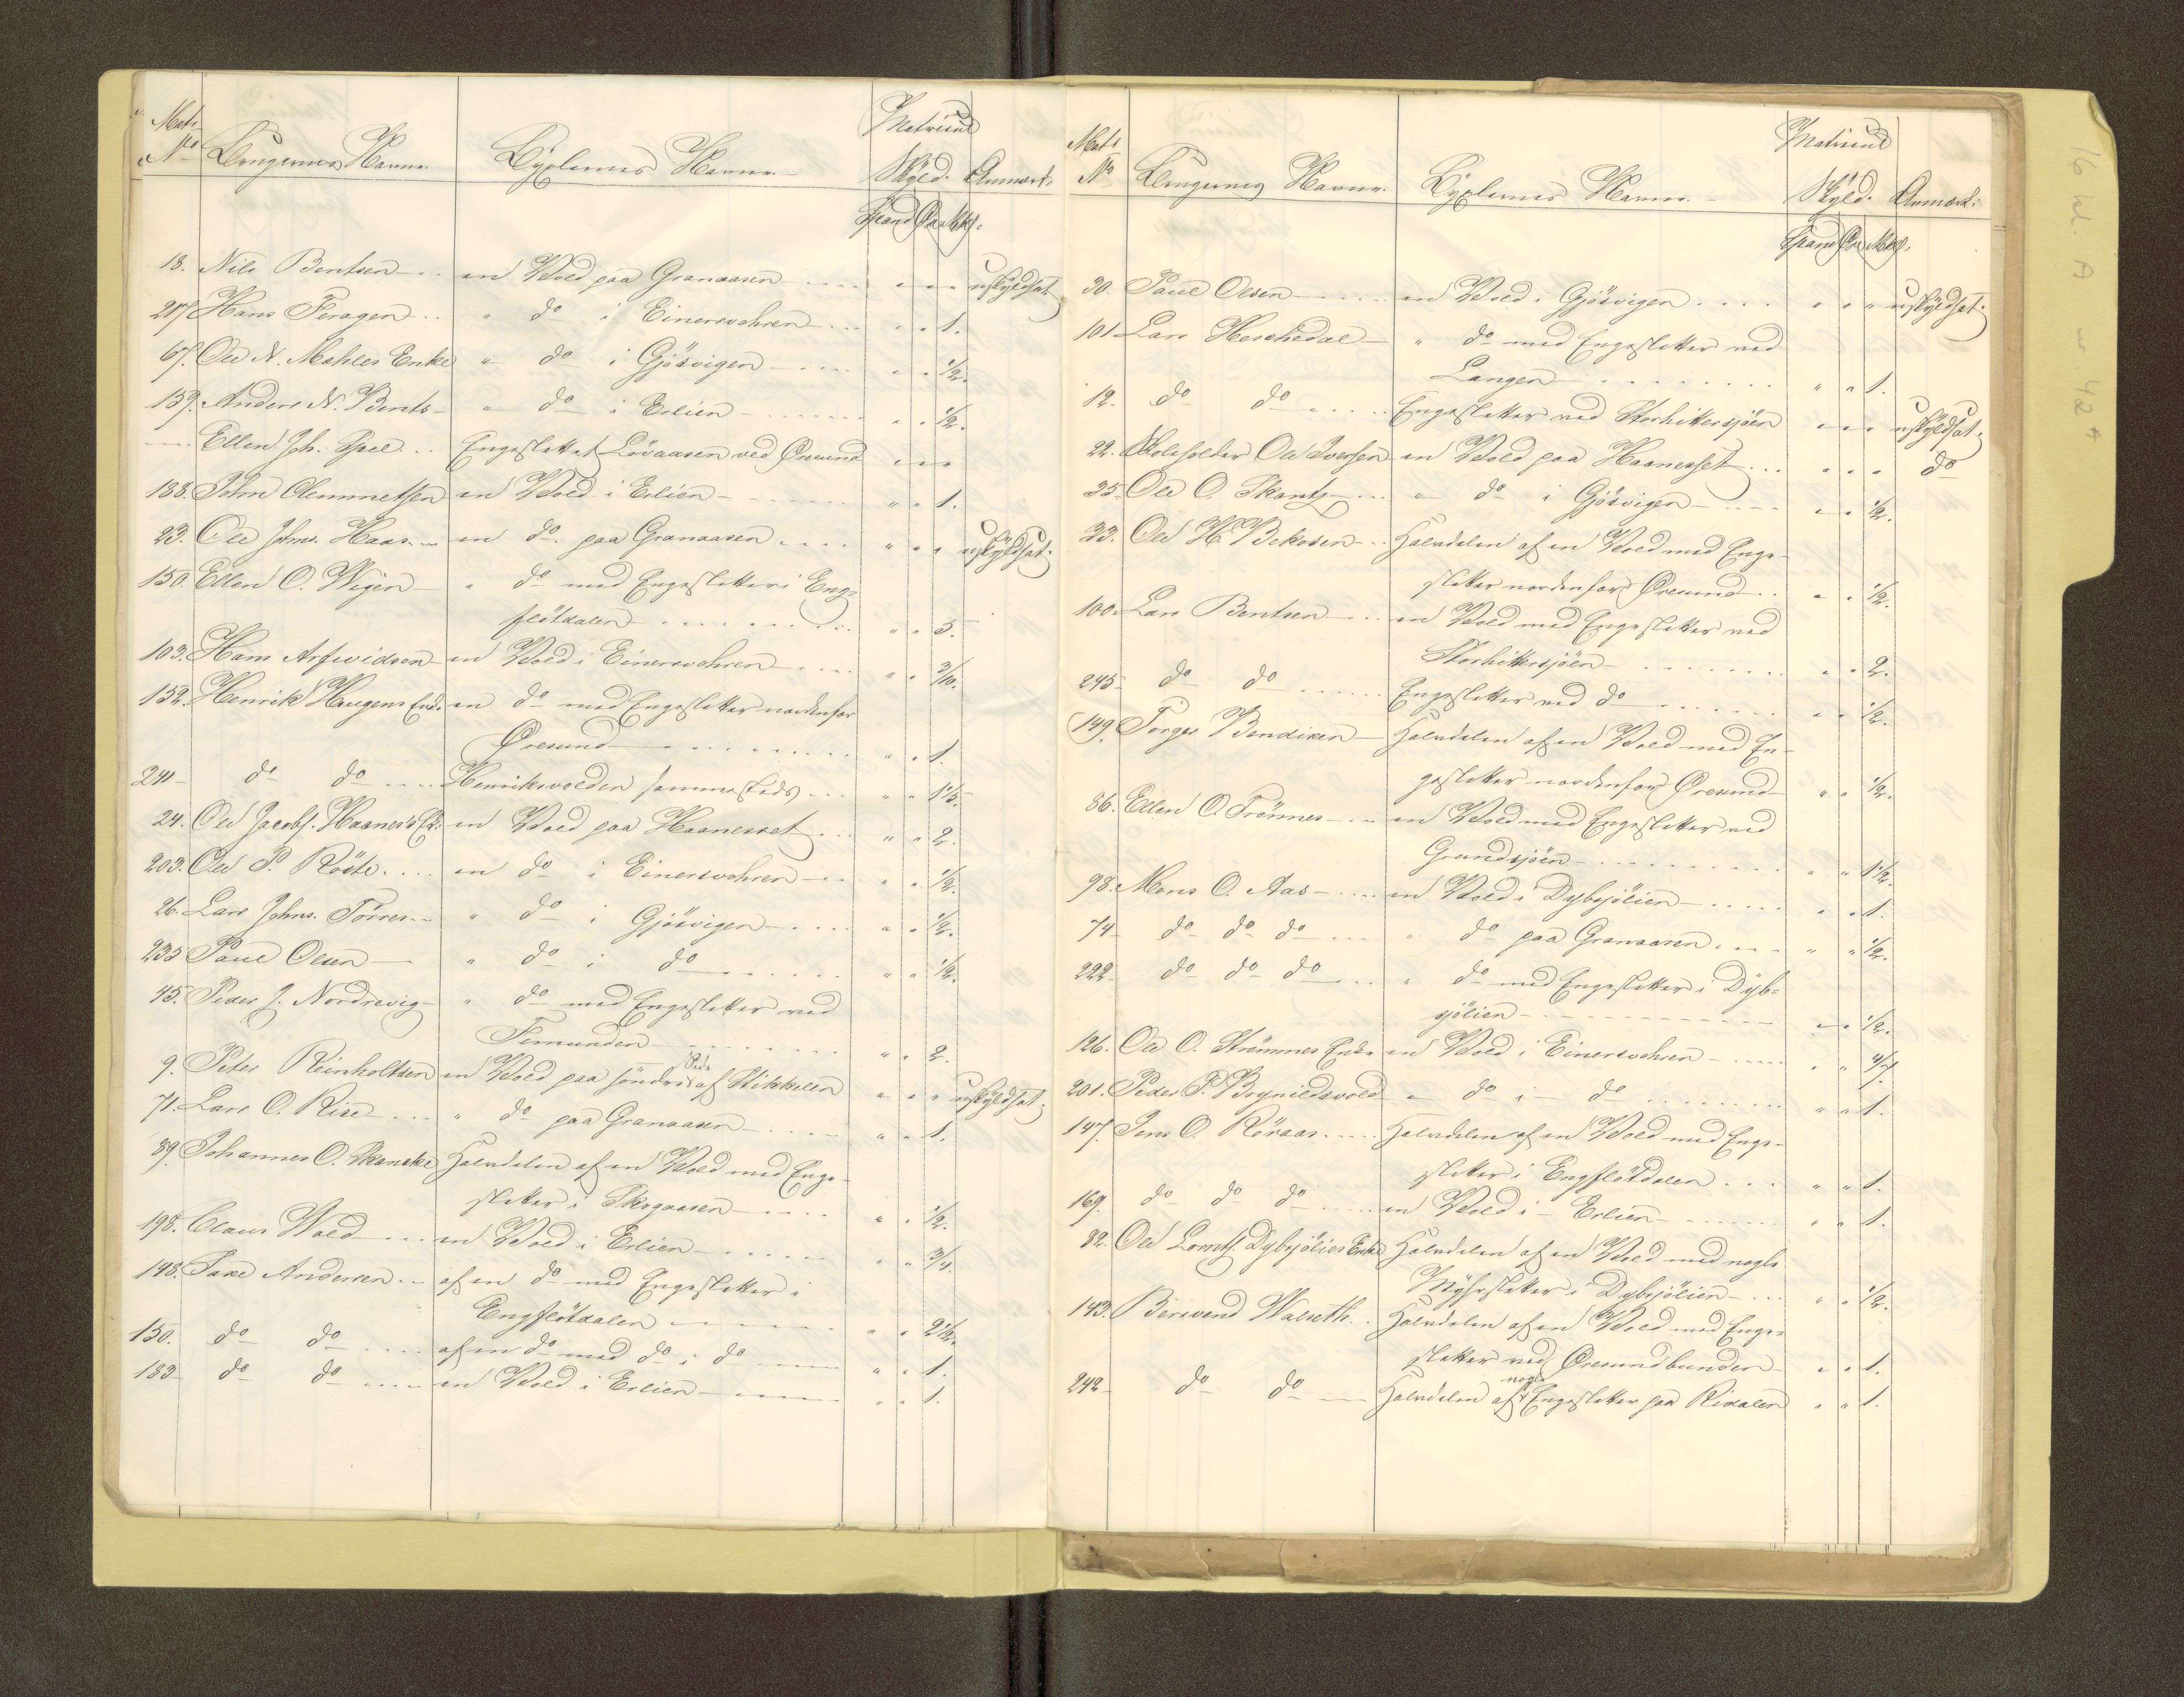 Mat. No Brugernes Navne. Byxlernes Navne. Matricul Skyld. Anmærk:
Spand Øre Mkl.
18. Nils Bentsen - en Vold paa Granaasen - " " " uskyldsat.
217. Hans Feragen " do i Einersvohren " " 1.
67. Ole N. Mahles Enke " do i Gjösvigen " " 1/2.
159. Anders N. Bents- " do i Erlien " " 1/2.
Ellen Joh. Spel Engeslettet Lövaasen ved Øresund " " "
188. John Clemmetsen en Vold i Erlien " " 1.
23. Ole Johns. Haas en do paa Granaasen " " " uskyldsat.
150. Ellen O. Wigen " do med Engesletter i Eng-
flötdalen " " 3.
103. Hans Arfwidson en Vold i Einersvohren " " 3/10.
152. Henrik Haugens Enke en do med Engesletter nordenfor
Øresund " " 1.
241 do do Henriksvolden sammesteds " " 1 1/5.
24. Ole Jacobs. Haanes's E: en Vold paa Haanesset " " 2.
203. Ole P. Röste en do i Einersvohren " " 1/2.
26. Lars Johns. Törres " do i Gjösvigen " " 1/2.
235 Paul Olsen " do i do " " 1/2.
45. Peder J. Nordrevig " do med Engesletter ved
Femunden " " 2.
9. Peter Reinholtsen en Vold paa söndre Side af Stikkelen " " " uskyldsat.
71. Lars O. Rise " do paa Granaasen " " 1.
89. Johannes O. Skancke Halvdelen af en Vold med Enge-
sletter i Skogaasen " " 1/2.
198. Claus Wold en Vold i Erlien " " 3/4.
148. Paul Andersen af en do med Engesletter i
Engflötdalen " " 2 1/2.
150. do do af en do med do i do " " 1.
183 do do en Vold i Erlien " " 1.
Mat. No Brugernes Navne. Byxlernes Navne. Matricul Skyld. Anmærk:
Spand Øre Mkl.
30. Paul Olsen en Vold i Gjösvigen " " " uskyldsat.
101 Lars Heschedal " do med Engesletter ved
Langen " " 1.
12. do do Engesletter ved Storhittersjöen " " " uskyldsat.
22. Skoleholder Ole Iversen en Vold paa Haanesset " " " do
35. Ole O. Skants " do i Gjösvigen " " 1/2.
33. Ole H. Bekosen Halvdelen af en Vold med Enge-
sletter nordenfor Øresund " " 1/2.
100. Lars Bentsen en Vold med Engesletter ved
Storhittersjöen " " 2.
245 do do Engesletter ved do " " 1/2.
149. Torger Bendixen Halvdelen af en Vold med En-
gesletter nordenfor Øresund " " 1/2.
86. Ellen O. Trönnes en Vold med Engesletter ved
Grundsjöen " " 1 1/2.
98. Mons O. Aas en Vold i Dybsjölien " " 1.
74 do do do " do paa Granaasen " " 1/2.
222 do do do " do med Engesletter i Dyb-
sjölien " " 1/2.
126. Ole O. Strömmes Enke en Vold i Einersvohren " " 4/7.
201. Peder P. Brynildsvold " do i do " " 1.
147. Jens O. Röraas Halvdelen af en Vold med Enge-
sletter i Engflötdalen " " 1.
169. do do do en Vold i Erlien " " 1.
82. Ole Lornts. Dybsjölies Enke Halvdelen af en Vold med nogle
Myhrsletter i Dybsjölien " " 1/2.
143. Berwend Walseth. Halvdelen af en Vold med Enge-
sletter ved Øresundbunden " " 1.
242 do do Halvdelen af nogle Engesletter paa Risalen " " 1.
16 kl. A nr. 42 A